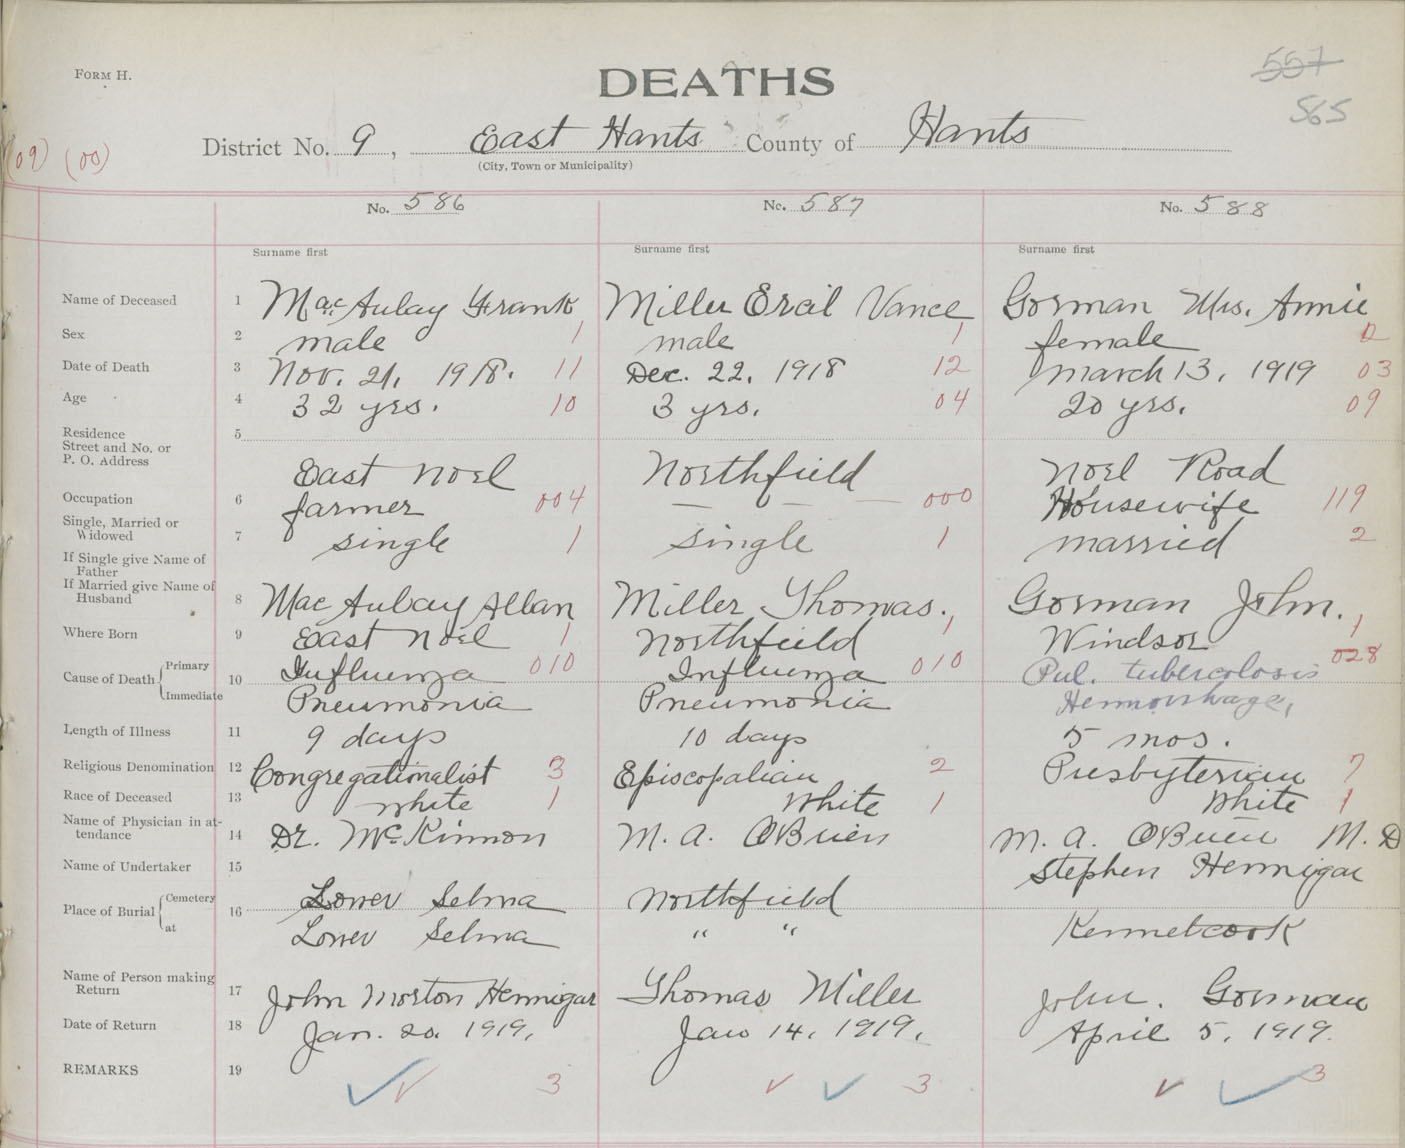 FORM H.
DEATHS
557
565
(09) (00)
District No. 9, East Hants County of Hants
(City, Town or Municipality)
No. 586 No. 587 No. 588
Surname first Surname first Surname first
Name of Deceased 1 MacAulay Frank Miller Ercil Vance Gorman Mrs. Annie
Sex 2 male 1 male 1 female 2
Date of Death 3 Nov. 21, 1918. 11 Dec. 22, 1918 12 March 13, 1919 03
Age 4 32 yrs. 10 3 yrs. 04 20 yrs. 09
Residence 5
Street and No. or
P. O. Address East Noel Northfield Noel Road
Occupation 6 farmer 004 — — — 000 Housewife 119
Single, Married or
Widowed 7 single 1 single 1 married 2
If Single give Name of
Father
If Married give Name of
Husband 8 MacAulay Allan Miller Thomas. Gorman John.
Where Born 9 East Noel 1 Northfield 1 Windsor 1
Cause of Death { Primary 10 Influenza 010 Influenza 010 Pul. tubercolosis 028
Immediate Pneumonia Pneumonia Hemorrhage,
Length of Illness 11 9 days 10 days 5 mos.
Religious Denomination 12 Congregationalist 3 Episcopalian 2 Presbyterian 7
Race of Deceased 13 white 1 White 1 White 1
Name of Physician in at-
tendance 14 Dr. McKinnon M. A. O'Brien M. A. O'Brien M. D
Name of Undertaker 15 Stephen Hennigar
Place of Burial { Cemetery 16 Lower Selma Northfield
at Lower Selma " " Kennetcook
Name of Person making
Return 17 John Morton Hennigar Thomas Miller John. Gorman
Date of Return 18 Jan. 20. 1919. Jan 14, 1919. April 5, 1919.
REMARKS 19 3 3 3